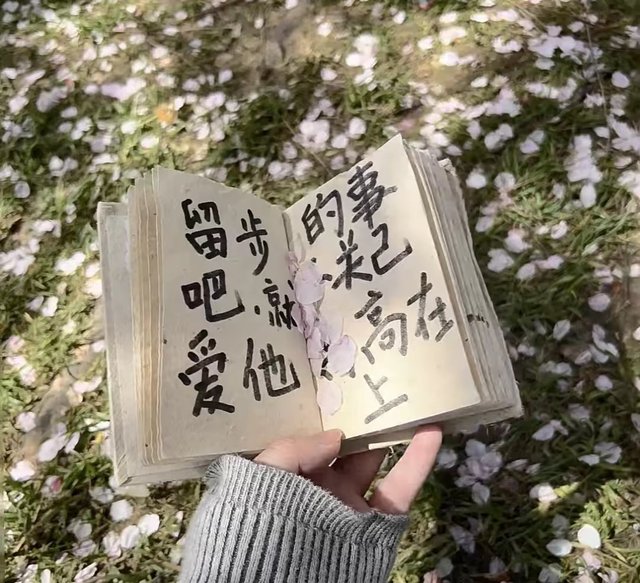 事己在
的高上
步就他
留吧爱